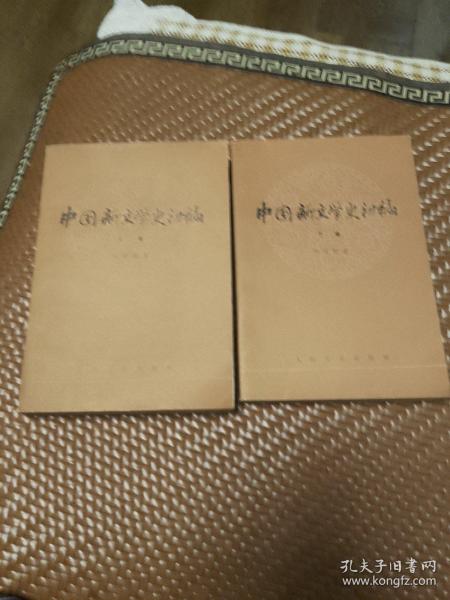 中国新文学史初稿
上卷
中国新文学史初稿
下卷
人民文学出版社
孔夫子旧书网
www.kongfz.com